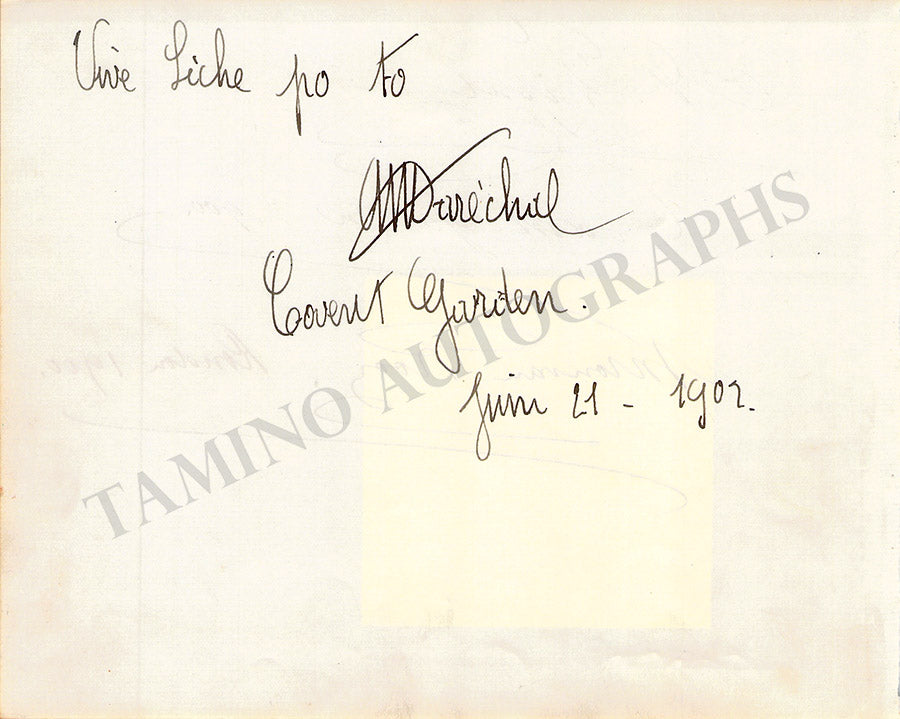 Vive Liche po to
Maréchal
Covent Garden.
Juin 21 - 1902.
TAMINO AUTOGRAPHS